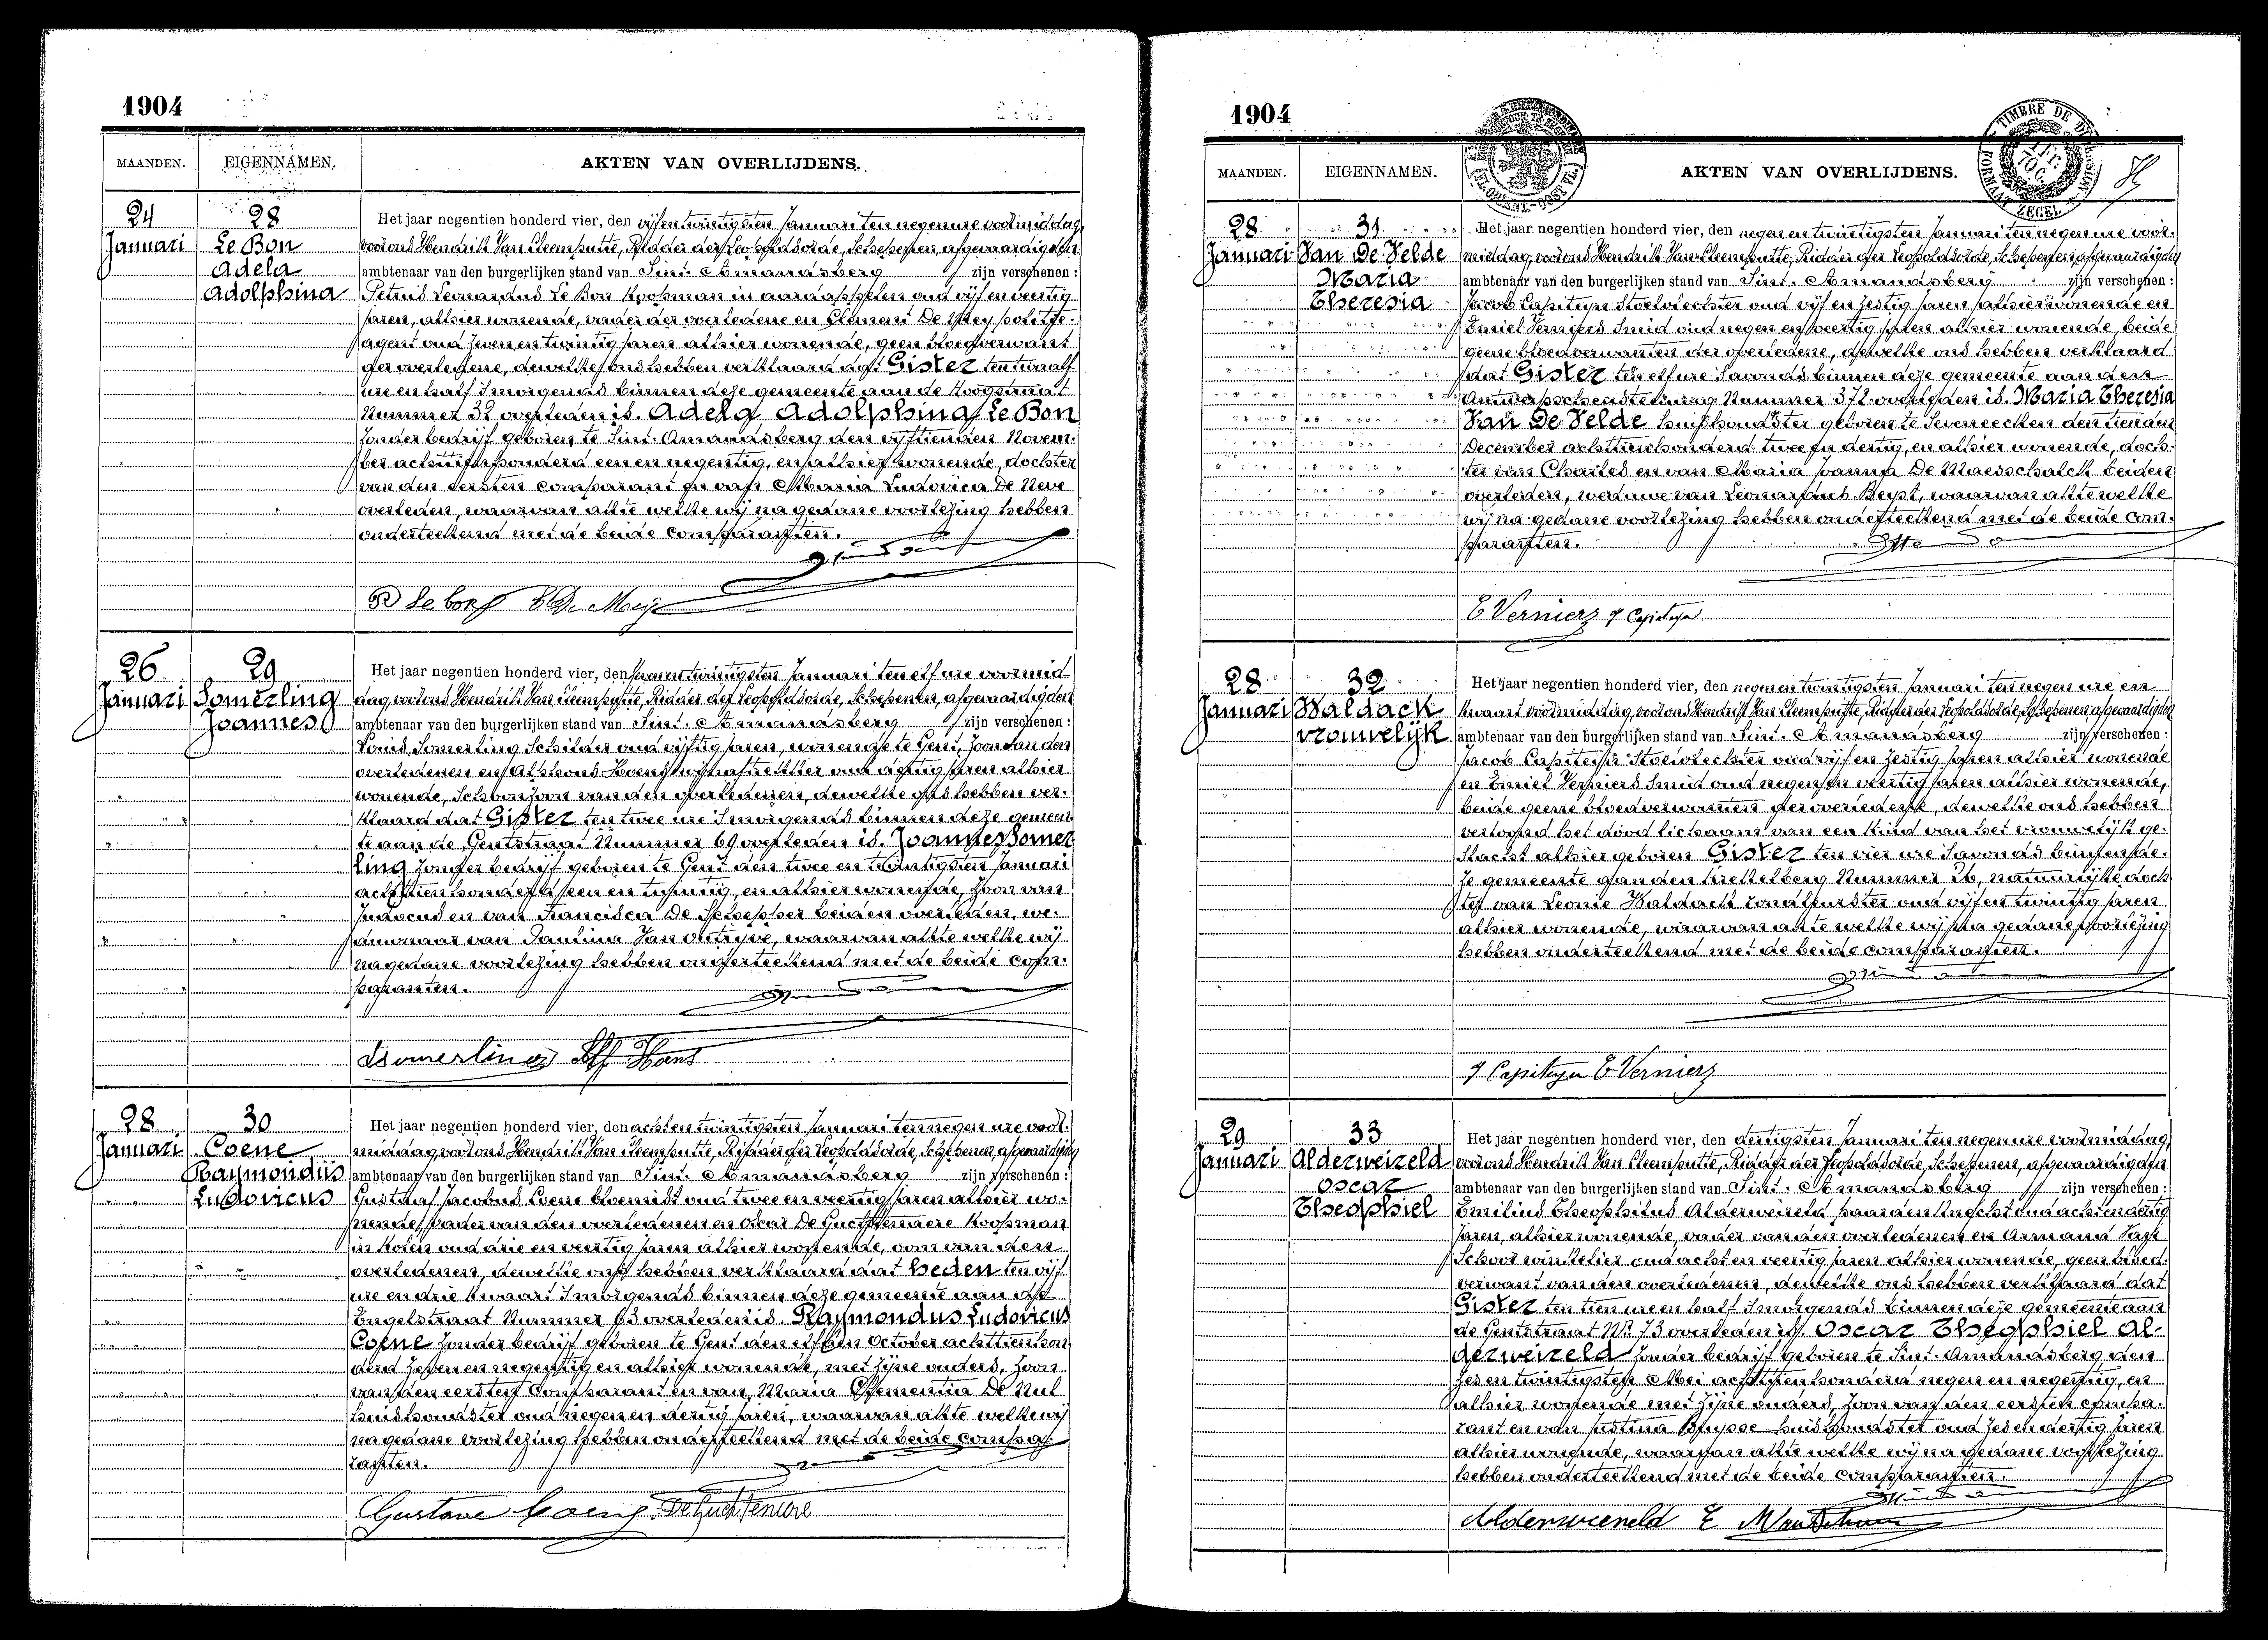 1904
MAANDEN. EIGENNAMEN. AKTEN VAN OVERLIJDENS.
24 Januari
28
Le Bon
Adela
Adolphina
Het jaar negentien honderd vier, den vijfentwintigsten Januari ten negen ure voormiddag,
voor ons Hendrik Van Cleemputte, Ridder der Leopoldsorde, Schepenen, afgevaardigden
ambtenaar van den burgerlijken stand van Sint-Amandsberg zijn verschenen :
Petrus Leonardus Le Bon koopman in aardappelen oud vijf en veertig
jaren, alhier wonende, vader der overledene en Clement De Meij politie-
agent oud zeven en twintig jaren alhier wonende, geen bloedverwant
der overledene, dewelke ons hebben verklaard dat Gister ten twaalf
ure en half 's morgends binnen deze gemeente aan de Hoogstraat
Nummer 32 overleden is. Adela Adolphina Le Bon
zonder bedrijf geboren te Sint-Amandsberg den vijftienden Novem-
ber achttienhonderd een en negentig, en alhier wonende, dochter
van den eersten comparant en van Maria Ludovica De Neve
overleden, waarvan akte welke wij na gedane voorlezing hebben
onderteekend met de beide comparanten.
26 Januari
29
Somerling
Joannes
Het jaar negentien honderd vier, den zevenentwintigsten Januari ten elf ure voormid-
dag, voor ons Hendrik Van Cleemputte, Ridder der Leopoldsorde, Schepenen, afgevaardigden
ambtenaar van den burgerlijken stand van Sint-Amandsberg zijn verschenen :
Louis Somerling Schilder oud vijftig jaren, wonende te Gent, zoon van den
overledenen en Alphons oud jaren alhier
wonende, Schoonzoon van den overledenen, dewelke ons hebben ver-
klaard dat Gister ten twee ure 's morgends binnen deze gemeen-
te aan de Gentstraat Nummer 69 overleden is. Joannes Somer
ling zonder bedrijf geboren te Gent den twee en twintigsten Januari
achttien honderd een en twintig, en alhier wonende, zoon van
Judocus en van Francisca De Schepper beiden overleden, we-
duwnaar van Paulina Van Outryve, waarvan akte welke wij
na gedane voorlezing hebben onderteekend met de beide com-
paranten.
LSomerling Alf Hans
28 Januari
30
Coene
Raymondus
Ludovicus
Het jaar negentien honderd vier, den achtentwintigsten Januari ten negen ure voor-
middag voor ons Hendrik Van Cleemputte, Ridder der Leopoldsorde, Schepenen, afgevaardigden
ambtenaar van den burgerlijken stand van Sint-Amandsberg zijn verschenen :
Gustaaf Jacobus Coene bloemist oud twee en veertig jaren alhier wo-
nende, vader van den overledenen en Oskar De Guchtenaere koopman
in kolen oud drie en veertig jaren alhier wonende, oom van den
overledenen, dewelke ons hebben verklaard dat heden ten vijf
ure en drie kwaart 's morgends binnen deze gemeente aan de
Engelstraat Nummer 63 overleden is. Raymondus Ludovicus
Coene zonder bedrijf geboren te Gent den elfden October achttienhon-
derd zeven en negentig en alhier wonende, met zijne ouders, zoon
van den eersten Comparant en van Maria Clementia De Mul
huishoudster oud negen en dertig jaren, waarvan akte welke wij
na gedane voorlezing hebben onderteekend met de beide compa-
ranten.
Gustave Coene
1904
MAANDEN. EIGENNAMEN. AKTEN VAN OVERLIJDENS.
TIMBRE DE DIMENSION
FORMAAT ZEGEL
28 Januari
31
Van De Velde
Maria
Theresia
Het jaar negentien honderd vier, den negenentwintigsten Januari ten negen ure voor-
middag, voor ons Hendrik Van Cleemputte, Ridder der Leopoldsorde, Schepenen, afgevaardigden
ambtenaar van den burgerlijken stand van Sint-Amandsberg zijn verschenen :
Jacob Capiteyn Stoelvlechter oud vijf en zestig jaren alhier wonende en
Emiel Verniers Smid oud negen en veertig jaren alhier wonende, beide
geene bloedverwanten der overledene, dewelke ons hebben verklaard
dat Gister ten elf ure 's avonds binnen deze gemeente aan den
Antwerpschensteenweg Nummer 372 overleden is. Maria Theresia
Van De Velde huishoudster geboren te Seveneecken den tienden
December achttienhonderd twee en dertig, en alhier wonende, doch-
ter van Charles en van Maria Joanna De Maesschalck beiden
overleden, weduwe van Leonardus Buyst, waarvan akte welke
wij na gedane voorlezing hebben onderteekend met de beide com-
paranten.
E Verniers J Capiteyn
28 Januari
32
Waldack
vrouwelijk
Het jaar negentien honderd vier, den negenentwintigsten Januari ten negen ure en
kwaart voormiddag, voor ons Hendrik Van Cleemputte, Ridder der Leopoldsorde, Schepenen, afgevaardigden
ambtenaar van den burgerlijken stand van Sint-Amandsberg zijn verschenen :
Jacob Capiteyn Stoelvlechter oud vijf en zestig jaren alhier wonende
en Emiel Verniers Smid oud negen en veertig jaren alhier wonende,
beide geene bloedverwanten der overledene, dewelke ons hebben
vertoond het dood lichaam van een kind van het vrouwelijk ge-
slacht alhier geboren Gister ten vier ure 's avonds binnen de-
ze gemeente aan den Nummer 26, natuurlijke doch
ter van Leonie Waldack oud vijf en twintig jaren
alhier wonende, waarvan akte welke wij na gedane voorlezing
hebben onderteekend met de beide comparanten.
J Capiteyn E Verniers
29 Januari
33
Alderweireld
Oscar
Theophiel
Het jaar negentien honderd vier, den dertigsten Januari ten negen ure voormiddag,
voor ons Hendrik Van Cleemputte, Ridder der Leopoldsorde, Schepenen, afgevaardigden
ambtenaar van den burgerlijken stand van Sint-Amandsberg zijn verschenen :
Emilius Theophilus Alderweireld paardenknecht oud acht en dertig
jaren, alhier wonende, vader van den overledenen en Armand Van
Schoor winkelier oud acht en veertig jaren alhier wonende, geen bloed-
verwant van den overledenen, dewelke ons hebben verklaard dat
Gister ten tien ure en half 's morgends binnen deze gemeente aan
de Gentstraat Nr 73 overleden is. Oscar Theophiel Al-
derweireld zonder bedrijf geboren te Sint-Amandsberg den
zes en twintigsten Mei achttienhonderd negen en negentig, en
alhier wonende met zijne ouders, zoon van den eersten compa-
rant en van Justina huishoudster oud zes en dertig jaren
alhier wonende, waarvan akte welke wij na gedane voorlezing
hebben onderteekend met de beide comparanten.